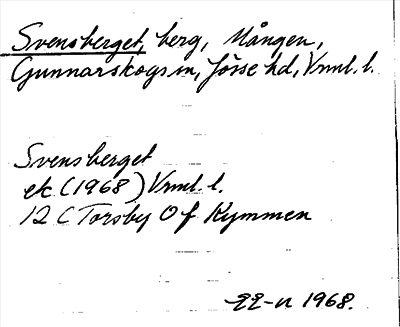 Svensberget, berg, Mången,
Gunnarskogs sn, Jösse hd, Vrml. l.
Svensberget
ek (1968) Vrml. l.
12 C Torsby O f Kymmen
1968.